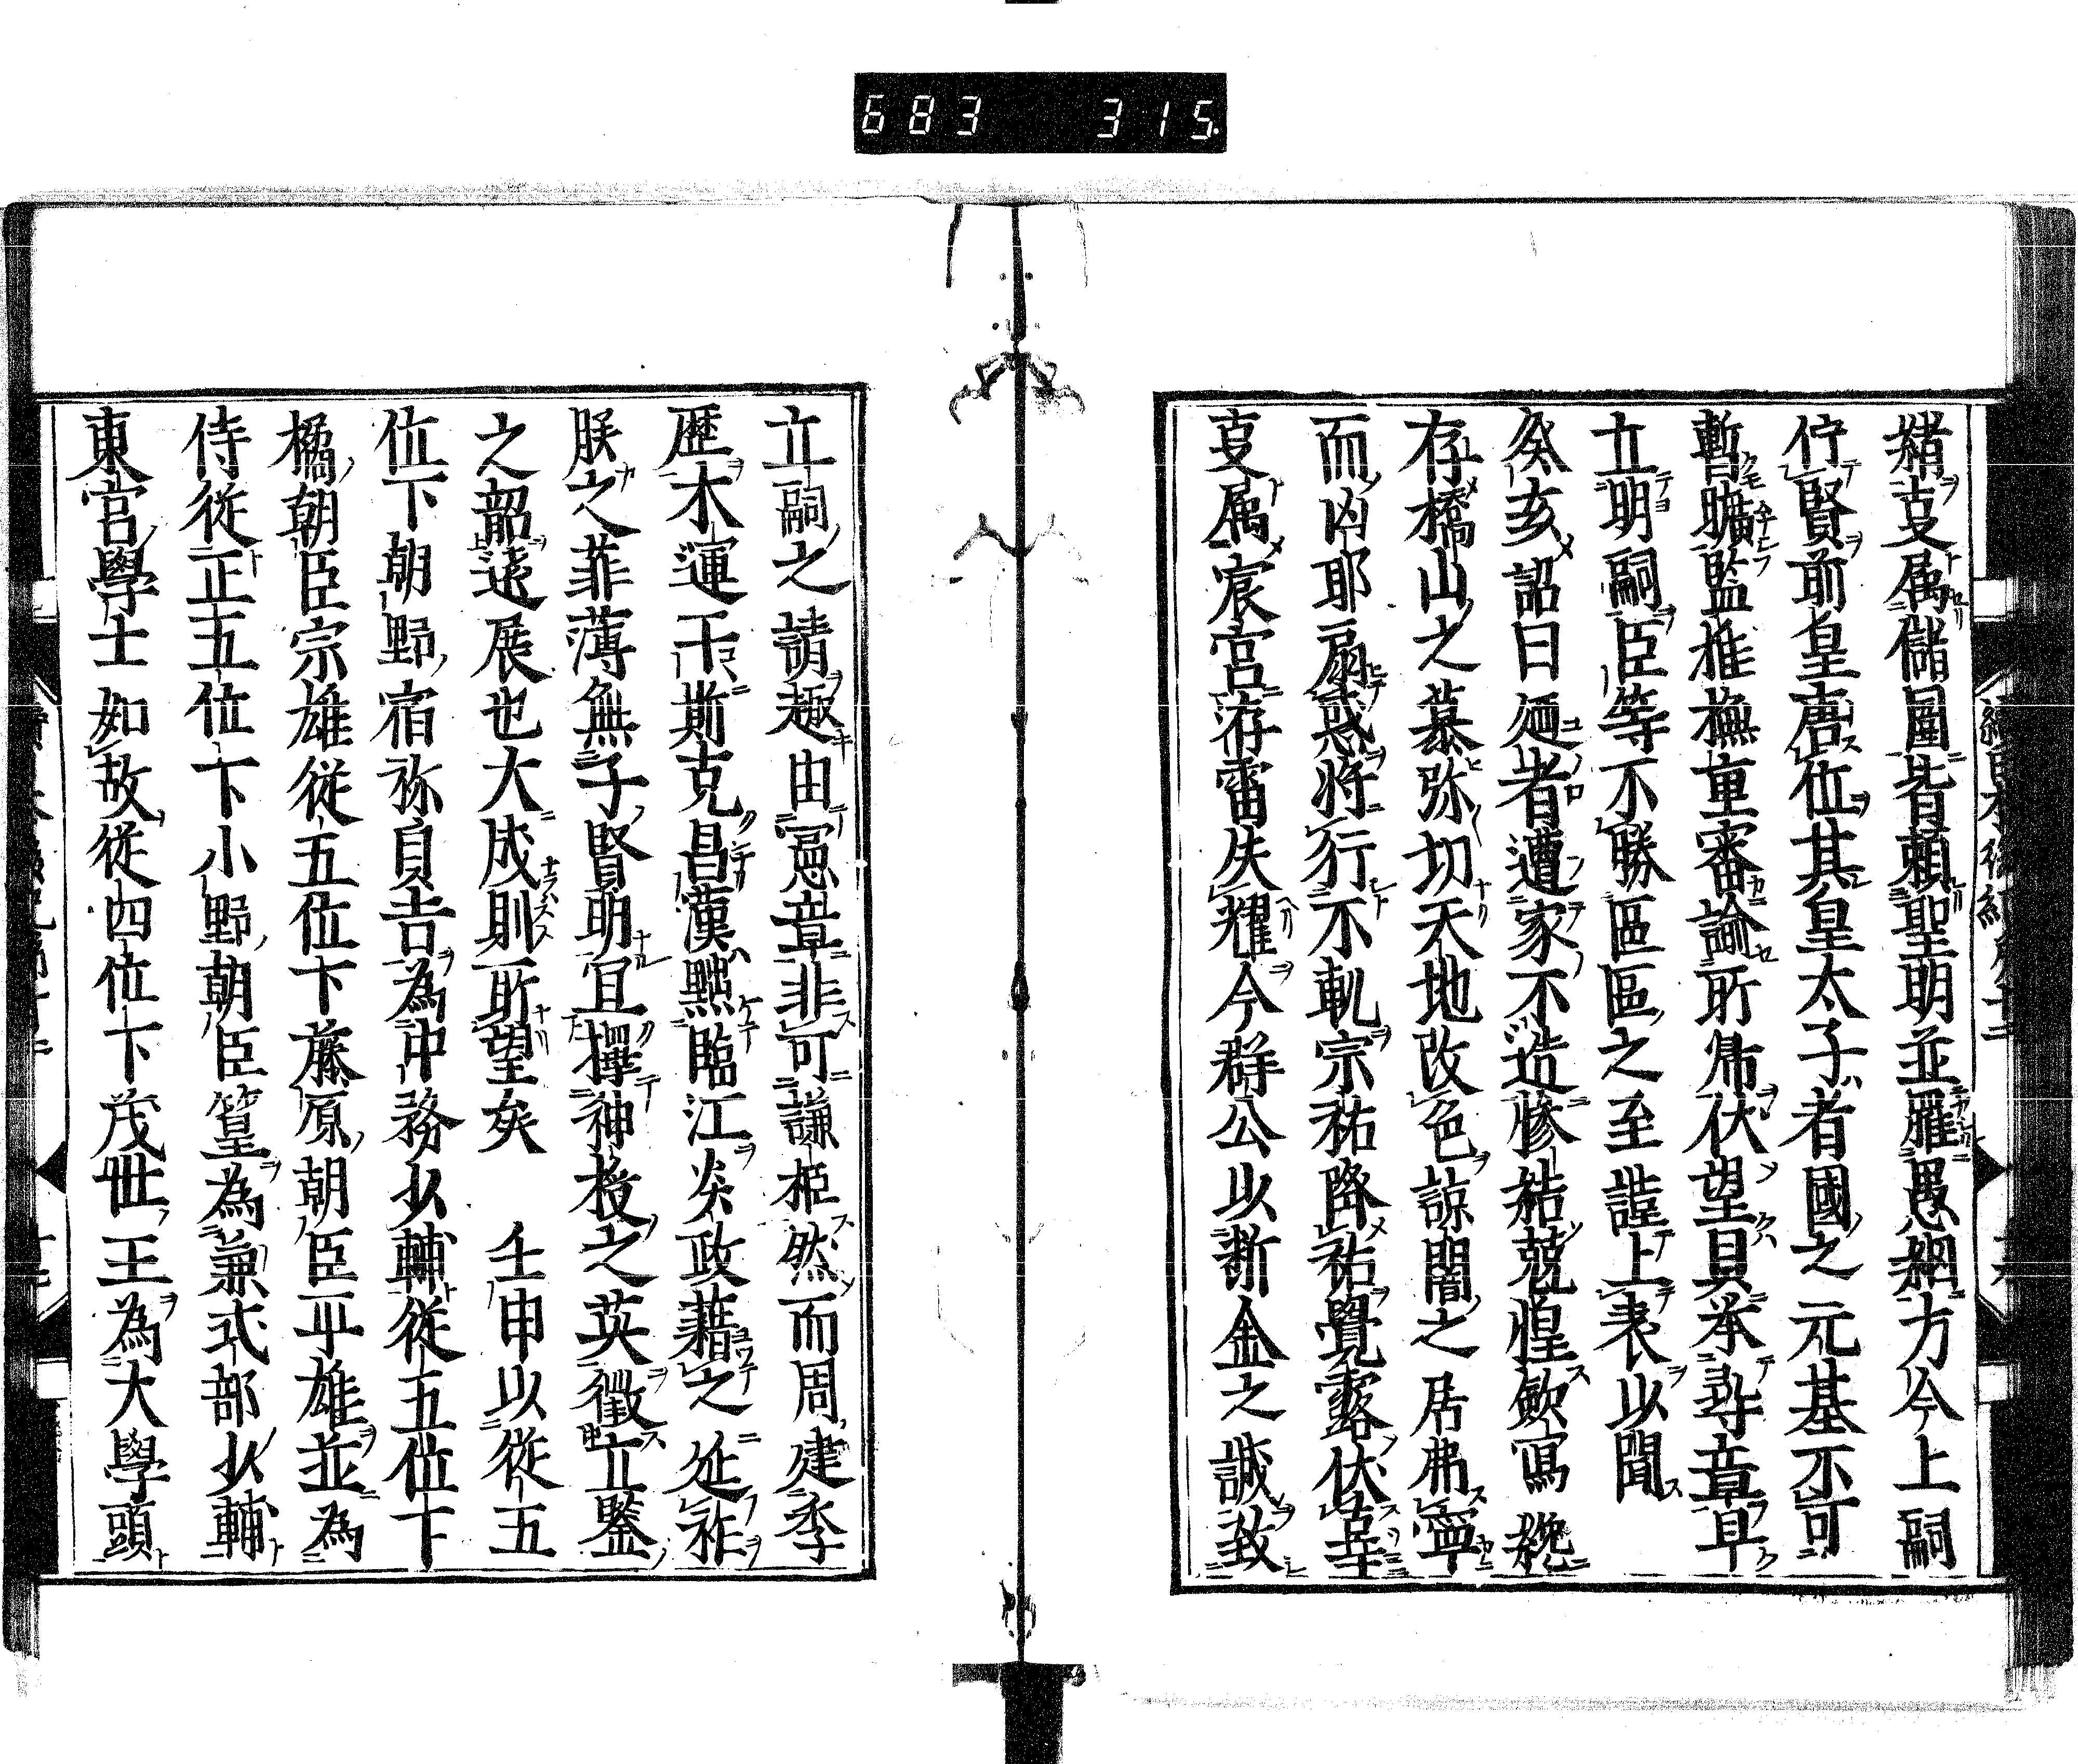 683 315
緒支属儲圖皆賴聖明並羅愚網方今上嗣
佇賢前皇唐位其皇太子者國之元基不可
暫曠監推撫重審諭所帰伏望貝举尋章早
立明嗣臣等不勝區區之至謹上表以聞
癸亥詔曰廼者遭家不造慘結兢惶歛寫纔
存橋山之慕弥切天地改色諒闇之居弗寧
而凶耶扇惑将行不軌宗祐降祐覺露伏辜
支属宸宮洊雷失耀今群公以断金之誠致
立嗣之請趣由憲章非可謙拒然而周建季
歷木運于斯克昌漢黜臨江炎政藉之延祚
朕之菲薄無子賢明宜擇神授之英徵立鑒
之韶遠展也大成則所望矣 壬申以從五
位下朝野宿祢貞吉為中務少輔從五位下
橘朝臣宗雄從五位下藤原朝臣平雄並為
侍從正五位下小野朝臣篁為兼式部少輔
東宮學士如故從四位下茂世王為大學頭